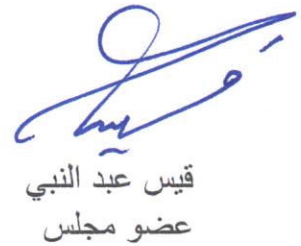 قيس عبد النبي
عضو مجلس